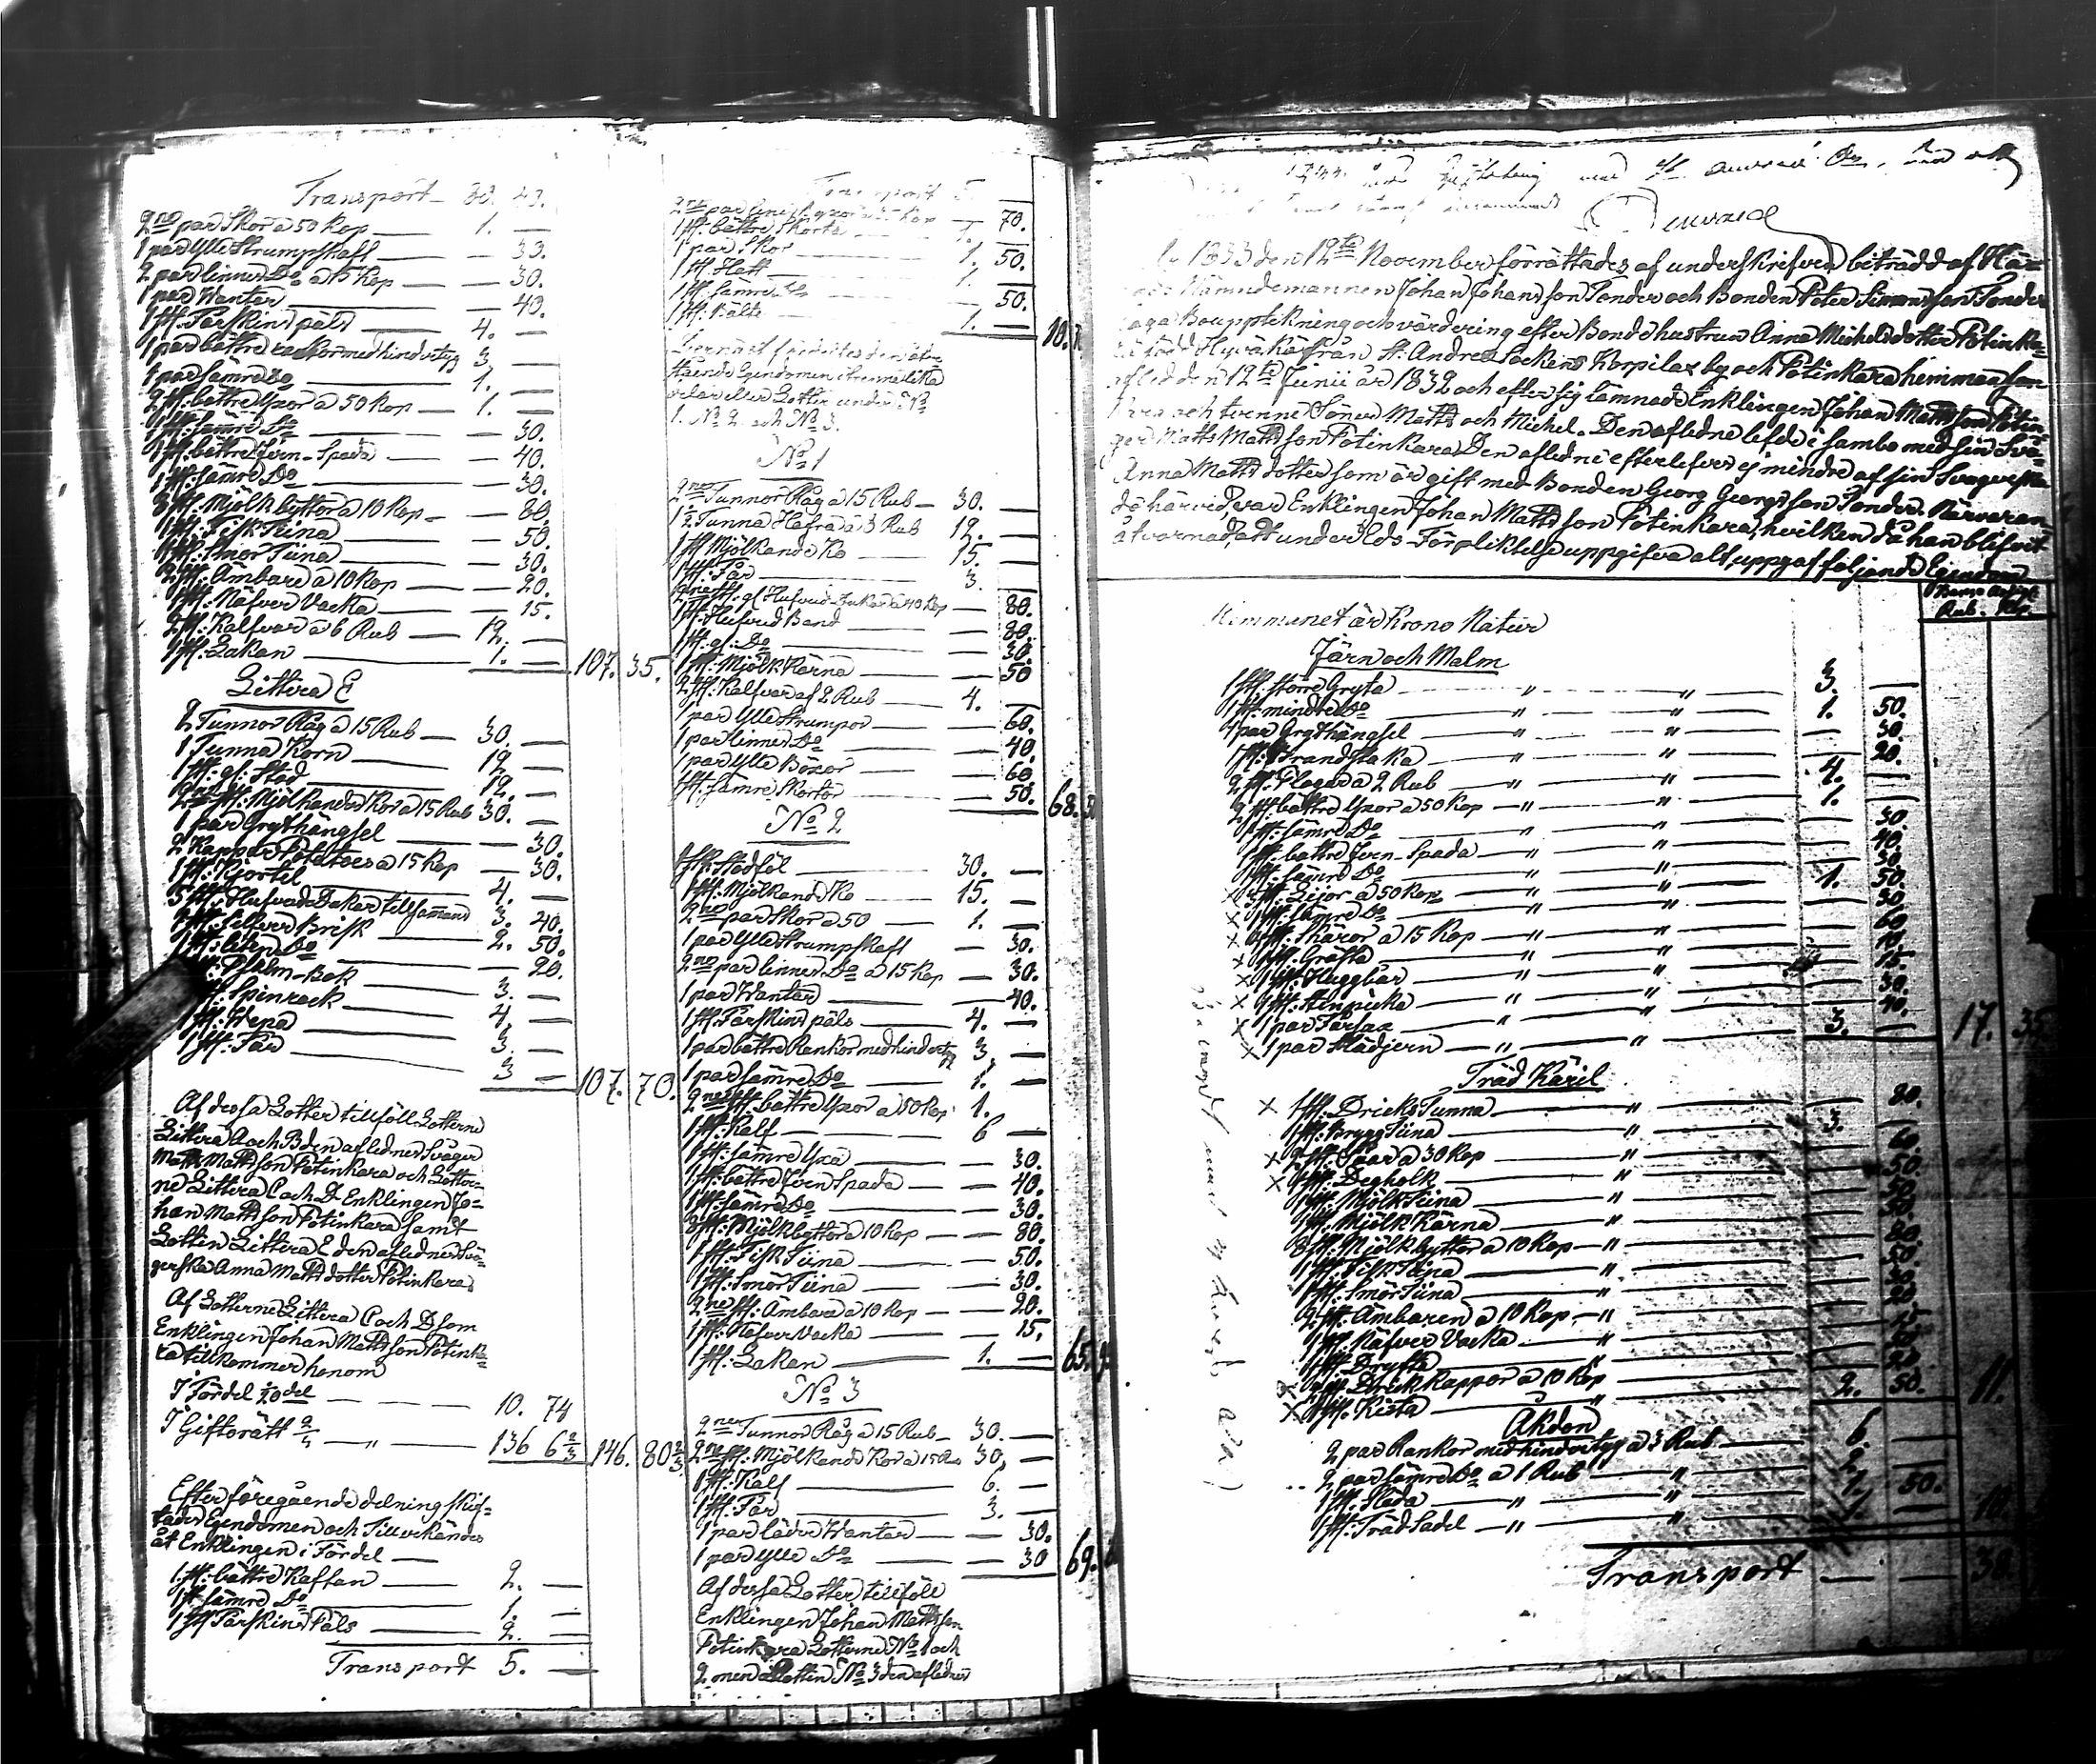 Transport 30. 43.
2ne par Skor a 50 Kop — 1. —
1 par Ylle Strumpskaft — — 33.
2 par linne Do a 15 Kop — — 30.
1 par Wantar — — 40.
1 st. Fårskins päls — 4. —
1 par bättre rankor med hindertyg 3 —
1 par sämre Do — 1. —
2 st. bättre Yxor a 50 Kop — 1. —
1 st. sämre Do — — 30.
1 st. bättre Jern-Spada — 40.
1 st. sämre Do — — 30.
8 st. Mjölkbyttor a 10 Kop — — 80.
1 st. Fisk Tiina — — 50.
1 st. Smör Tiina — — 30.
2 st. Ämbare a 10 Kop — — 20.
1 st. Näfver Vacka — — 15.
2 st. Kalfvar a 6 Rub — 12. —
1 st. Lakan — 1. — 107. 35.
Littera E
2 Tunnor Råg a 15 Rub — 30. —
1 Tunna Korn — 12 —
1 st. gl. Stod — 12. —
2ne st. Mjölkande Kor a 15 Rub 30. —
1 par Grythängsel — — 30.
2 Kappar Potatoes a 15 Kop — 30.
1 st. Kjortel — 4. —
5 st. Hufvud Dukar tillsammans 3. 40.
1 st. Silfver Brisk — 2. 50.
1 st. liten Do — — 20.
st. Psalm-Bok — 3. —
st. Spinrock — 4 —
1 st. Wepa — 3. —
1 st. Får — 3 — 107. 70.
Af dessa Lotter tillföll Lotterne
Littera A och B den aflednes Svåger
Matts Mattsson Potinkara och Lotter-
ne Littera C och D Enklingen Jo-
han Mattsson Potinkara samt
Lotten Littera E den aflednes Svä-
gerska Anna Mattsdotter Potinkara
Af Lotterne Littera C och D som
Enklingen Johan Mattsson Potinka-
ra tillkommer honom
I Fördel 1/20 del — — 10. 74
I Giftorätt 2/3 — „ — 136 6 2/3 146. 80 2/3
Efter föregående delning skif-
tades Egendomen och Tillerkändes
åt Enklingen i Fördel —
1 st. bättre Kaftan — 2. —
1 st. sämre Do — 1. —
1 st. Fårskins Päls — 2. —
Transport 5. —
Transport 5. —
— 70.
1 st. bättre Skorta — 1. —
1 par Skor — 1. 50.
1 st. Hatt — 1. —
1 st. sämre Do — 50.
1 st. Bälte — 1. — 10.
stående Egendomen i trenne lika
delar eller Lotter under No
1. No 2 och No 3.
No 1
2ne Tunnor Råg a 15 Rub — 30. —
1 1/2 Tunna Hafra a 8 Rub 12. —
1 st Mjölkande Ko — 15. —
1 st. Får — 3. —
2ne st. gl. Hufvud Dukar a 40 Kop — 80.
1 st. Hufvud Band — — 80.
1 st. gl. Do — — 30.
1 st. Mjölk Kärna — — 50
2 st. Kalfvar af 2 Rub — 4. —
1 par Ylle Strumpor — — 60.
1 par linne Do — — 40.
1 par Ylle Böxor — — 60.
1 st. sämre Skortor — — 50. 68.
No 2
1 st. Stodföl — 30. —
1 st. Mjölkande Ko — 15. —
2ne par Skor a 50 — 1. —
1 par Ylle Strumpskaft — 30.
2ne par linne Do a 15 Kop — 30.
1 par Wantar — — 40.
1 st. Fårskins päls — 4. —
1 par bättre Rankor med hindertyg 3. —
1 par sämre Do — 1. —
2ne st. bättre Yxor a 50 Kop 1. —
1 st. Kalf — — 6 —
1 st. sämre Yxa — — 30.
1 st. bättre Jern Spada — — 40.
1 st. sämre Do — — 30.
8 st. Mjölkbyttor a 10 Kop — — 80.
1 st. Fisk Tiina — — 50.
1 st. Smör Tiina — — 30.
2ne st. Ämbare a 10 Kop — — 20.
1 st. Näfver Vacka — — 15.
1 st. Lakan — 1. — 65.
No 3
2ne Tunnor Råg a 15 Rub — 30. —
2ne st. Mjölkande Kor a 15 Ru 30. —
1 st. Kalf — 6. —
1 st. Får — 3. —
1 par läder Wantar — — 30.
1 par ylle Do — — 30 69.
Af dessa Lotter tillföll
Enklingen Johan Mattsson
Potinkara Lotterne No 1 och
2 men Lotten No 3 den aflednes
1833 den 12te November förrättades af underskrifven biträdd af Hä-
Nämndemannen Johan Johansson Tonder och Bonden Peter Simonsson Tonder
laga Bouppteckning och värdering efter Bonde hustrun Anna Michelsdotter Potinka-
ra född Hyväkä från St. Andreæ Sockens Korpilax by och Potinkara hemman som
afled den 12te Junii år 1832 och efter sig lämnade Enklingen Johan Mattsson Potin-
kara och tvenne Söner Matts och Michel. Den aflednes lefde i sambo med sin Svå-
ger Matts Mattsson Potinkara Den aflednes efterlefver ej mindre af sin Svägerska
Anna Mattsdotter som är gift med Bonden Georg Georgsson Tonder. Närvaran-
de härvid var Enklingen Johan Mattsson Potinkara, hvilken då han blefvit
åtvarnad, att under Eds Förpliktelse uppgifva alt, uppgaf följande Egendom
Rub. Kop.
Hemmanet är Krono Natur
Järn och Malm
1 st. större Gryta — „ — „ — 3. —
1 st. mindre Do — „ — „ — 1. 50.
1 par Grythängsel — „ — „ — 30.
1 st. Brandstaka — „ — „ — 20.
2 st. Plogar a 2 Rub — „ — 4. —
2 st. bättre Yxor a 50 Kop — „ — „ — 1. —
1 st. sämre Do — „ — „ — 30.
1 st. bättre Jern-Spada — „ — „ — 40.
1 st. sämre Do — „ — „ — 30
× 3 st. Lijor a 50 Kop — „ — „ — 1. 50.
× 1 st. sämre Do — „ — „ — 50.
× 4 st. Skäror a 15 Kop — „ — „ — 60
× 1 st. Gräfta — „ — „ —
× 1 st. Huggbär — „ — „ — 15.
× 1 st. Stenpicka — „ — „ — 30.
× 1 par Fårsax — „ — „ — 40.
× 1 par Klädjern — „ — „ — 3. — 17. 35
Träd Käril
× 1 st. Dricks Tunna — „ — 80.
1 st. Brygg Tiina — „ — 3. —
× 2 st. Såar a 30 Kop — „ — 60.
× 1 st. Degholk — „ — 50.
1 st. Mjölk Tiina — „ —
1 st. Mjölk Kärna — „ — 50.
8 st. Mjölkbyttor a 10 Kop — „ — 80.
1 st. Fisk Tiina — „ — 50.
1 st. Smör Tiina — „ — 30
2 st. Ämbaren a 10 Kop — „ — 20
1 st. Näfver Vacka — „ — 15
1 st. Dryfta — „ —
× 2 st. Drick Kappor a 10 Kop — 20
× 1 st. Kista — „ — 2. 50. 11.
Åkdon
2 par Rankor med hindertyg a 3 Rub — 6. —
2 par sämre Do a 1 Rub — „ — 2. —
1 st. Släda — „ — „ — 1. 50.
1 st. Träd Sadel — „ — „ — 1. — 10.
Transport — — 38.